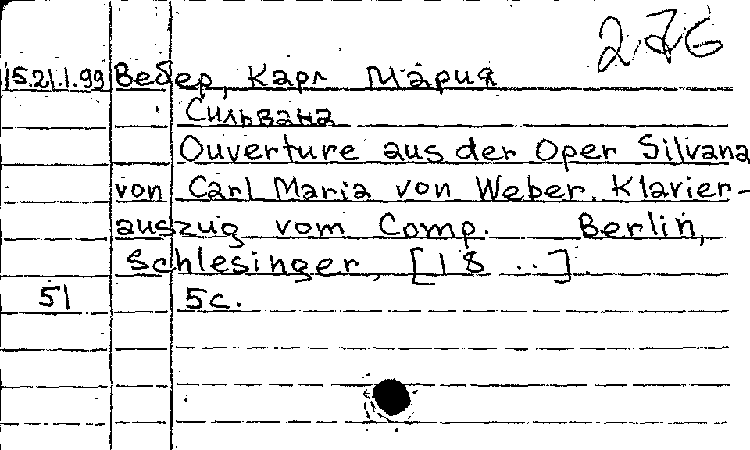 276
15.21.1.99 Вебер, Карл Мария
Сильвана
Ouverture aus der Oper Silvana
von Carl Maria von Weber. Klavier-
auszug vom Comp. Berlin,
Schlesinger, [18 ..].
51 5с.